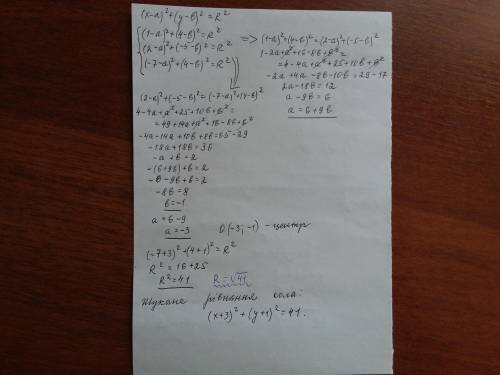 (x-a)²+(y-b)²=R²
(1-a)²+(4-b)²=R²
(2-a)²+(-5-b)²=R²
(-7-a)²+(4-b)²=R²
=> (1-a)²+(4-b)²=(2-a)²+(-5-b)²
1-2a+a²+16-8b+b²=
=4-4a+a²+25+10b+b²
-2a+4a-8b-10b=29-17
2a-18b=12
a-9b=6
a=6+9b
(2-a)²+(-5-b)²=(-7-a)²+(4-b)²
4-4a+a²+25+10b+b²=
=49+14a+a²+16-8b+b²
-4a-14a+10b+8b=65-29
-18a+18b=36
-a+b=2
-(6+9b)+b=2
-6-9b+b=2
-8b=8
b=-1
a=6-9
a=-3
O(-3;-1) - центр
(-7+3)²+(4+1)²=R²
R²=16+25
R²=41
R=√41
Шукане рівняння кола:
(x+3)²+(y+1)²=41.